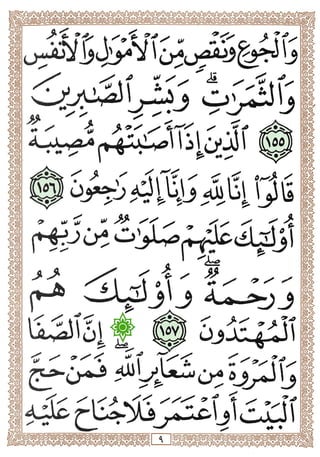 وَٱلْجُوعِ وَنَقْصٍ مِّنَ ٱلْأَمْوَٰلِ وَٱلْأَنفُسِ
وَٱلثَّمَرَٰتِ ۗ وَبَشِّرِ ٱلصَّٰبِرِينَ
١٥٥ ٱلَّذِينَ إِذَآ أَصَٰبَتْهُم مُّصِيبَةٌ
قَالُوٓا۟ إِنَّا لِلَّهِ وَإِنَّآ إِلَيْهِ رَٰجِعُونَ ١٥٦
أُو۟لَٰٓئِكَ عَلَيْهِمْ صَلَوَٰتٌ مِّن رَّبِّهِمْ
وَرَحْمَةٌ ۖ وَأُو۟لَٰٓئِكَ هُمُ
ٱلْمُهْتَدُونَ ١٥٧ ۞ إِنَّ ٱلصَّفَا
وَٱلْمَرْوَةَ مِن شَعَآئِرِ ٱللَّهِ ۖ فَمَنْ حَجَّ
ٱلْبَيْتَ أَوِ ٱعْتَمَرَ فَلَا جُنَاحَ عَلَيْهِ
٩